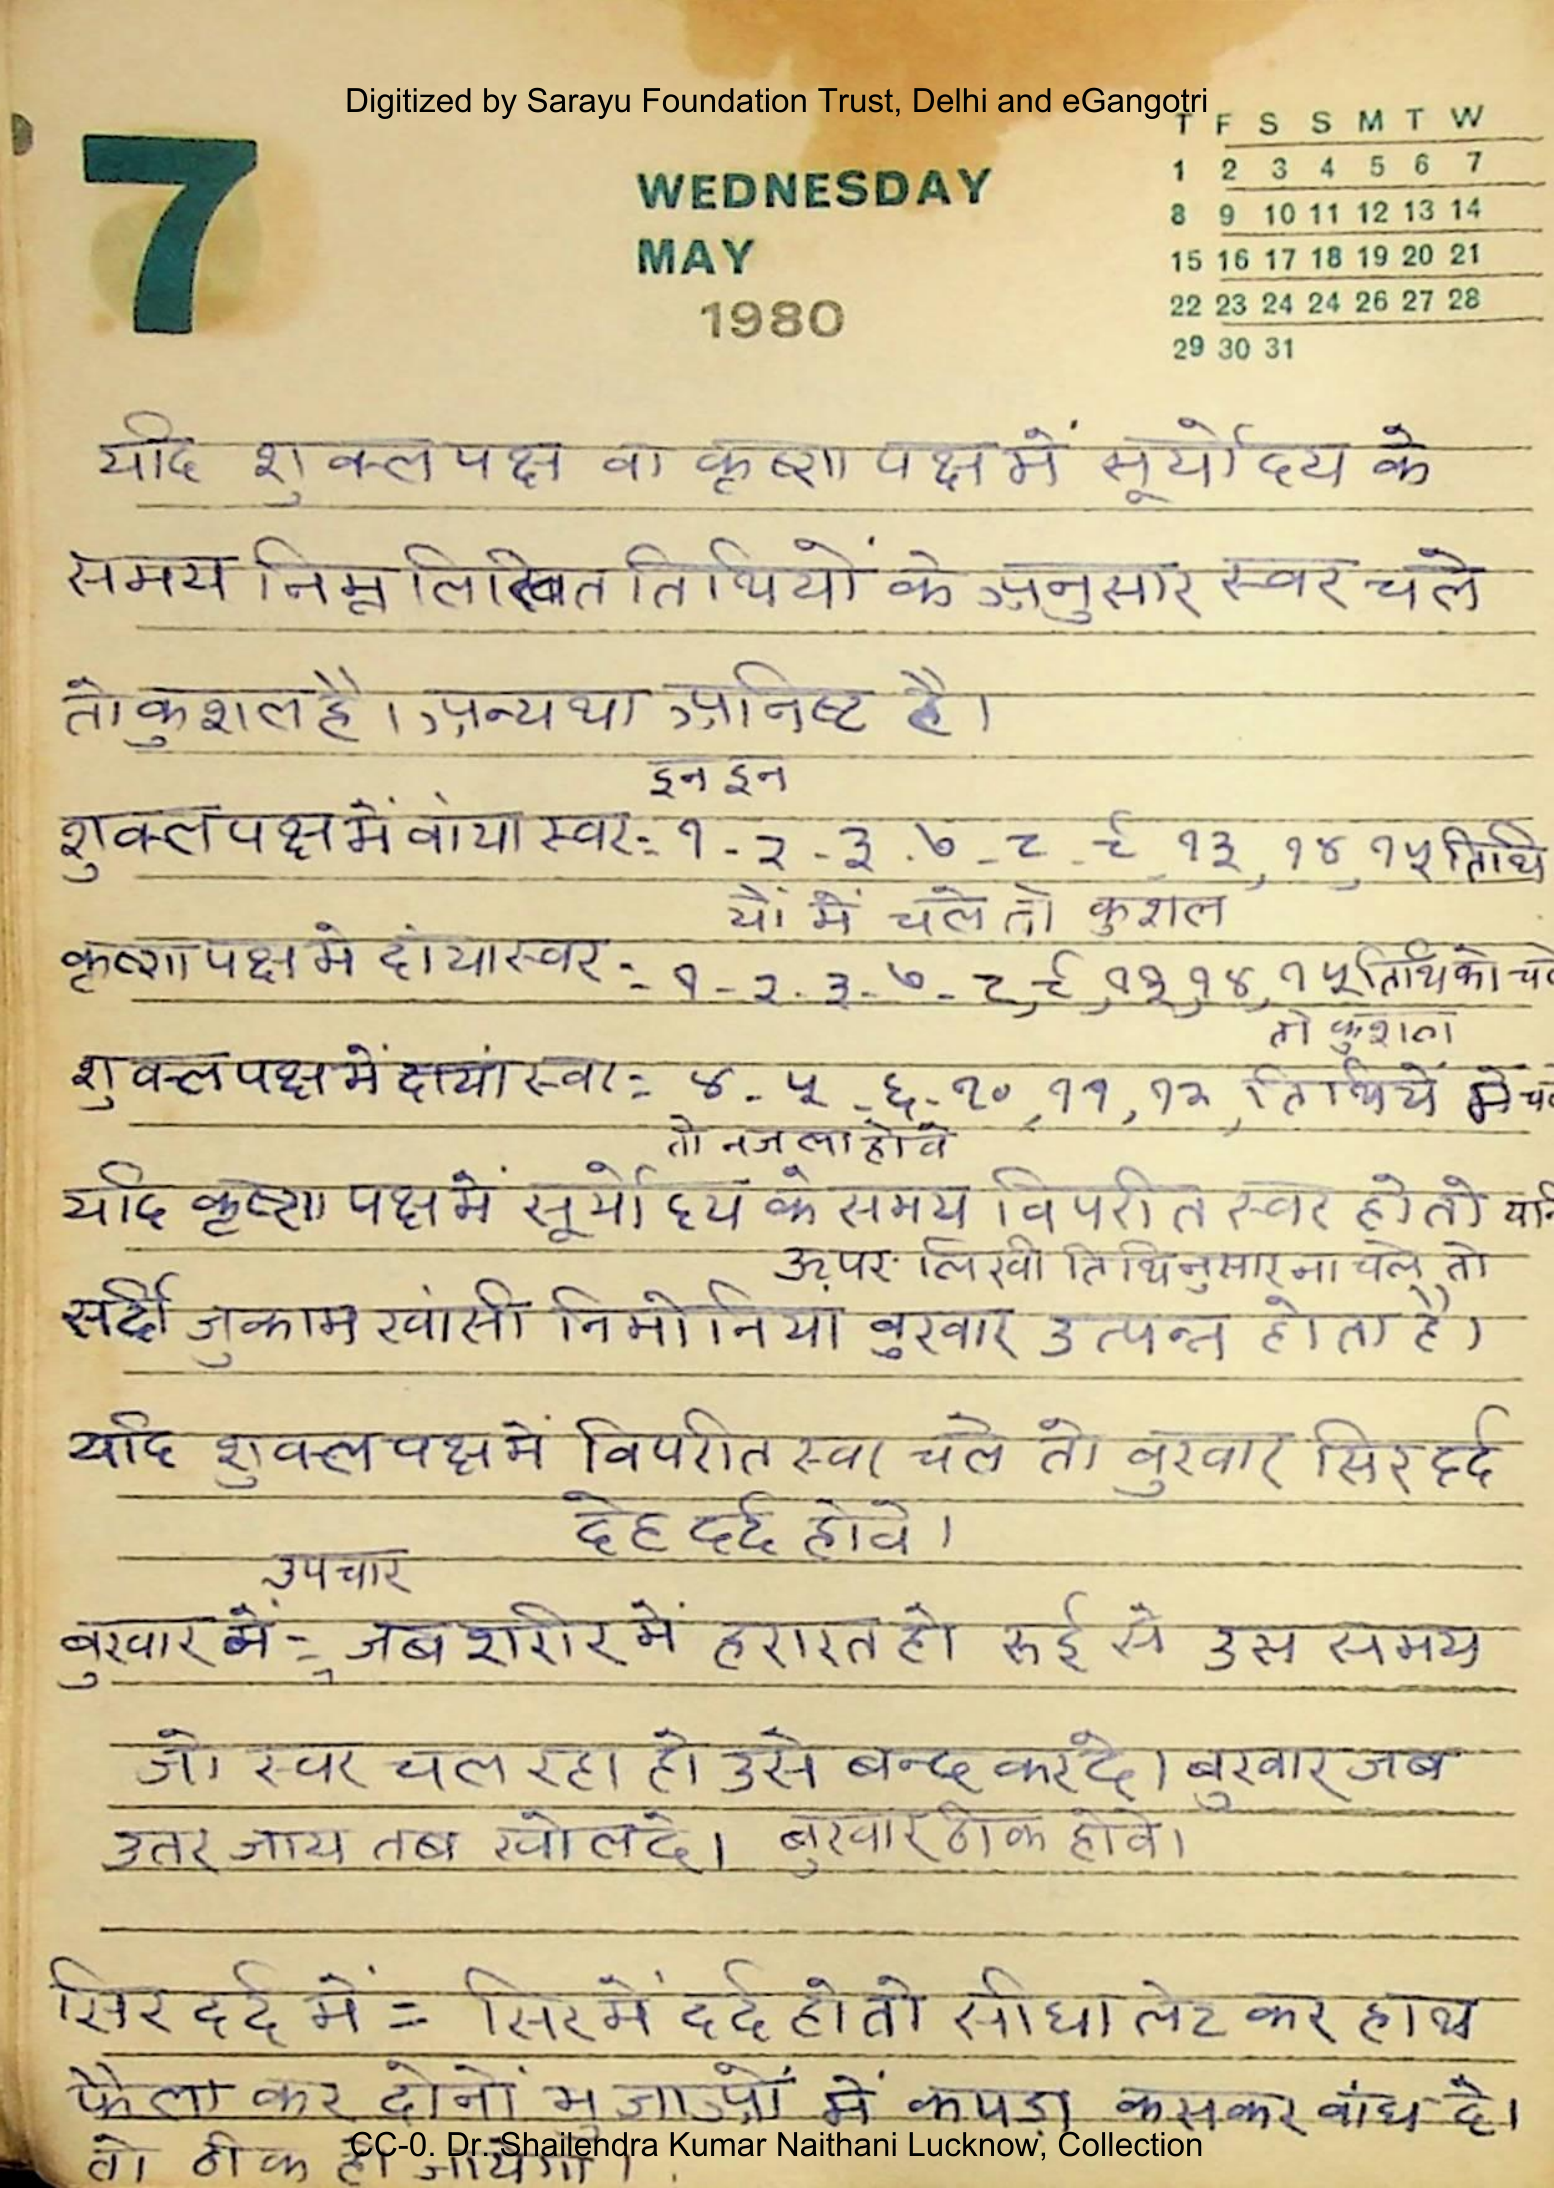 Digitized by Sarayu Foundation Trust, Delhi and eGangotri
7
WEDNESDAY
MAY
1980
T F S S M T W
1 2 3 4 5 6 7
8 9 10 11 12 13 14
15 16 17 18 19 20 21
22 23 24 24 26 27 28
29 30 31
यदि शुक्ल पक्ष वा कृष्ण पक्ष में सूर्योदय के
समय निम्न लिखित तिथियों के अनुसार स्वर चले
तो कुशल है। अन्यथा अनिष्ट है।
इन इन
शुक्ल पक्ष में वांया स्वर:- १ - २ - ३ - ७ - ८ - ९, १३, १४, १५ तिथि
यों में चले तो कुशल
कृष्ण पक्ष मे दांया स्वर :- १ - २ - ३ - ७ - ८, ९, १३, १४, १५ तिथि को चले
तो कुशल
शुक्ल पक्ष में दायां स्वर := ४ - ५ - ६ - १० , ११ , १२ , तिथियें में चले
तो नजला होवे
यदि कृष्ण पक्ष में सूर्योदय के समय विपरीत स्वर हो तो यानि
ऊपर लिखी तिथिनुसार ना चले तो
सर्दी जुकाम खांसी निमोनियां वुखार उत्पन्न होता है।
यदि शुक्ल पक्ष में विपरीत स्वर चले तो वुखार सिर दर्द
देह दर्द होवे।
उपचार
बुखार में = जब शरीर में हरारत हो रूई से उस समय
जो स्वर चल रहा हो उसे बन्द कर दे। बुखार जब
उतर जाय तब खोल दे। बुखार ठीक होवे।
सिर दर्द में = सिर में दर्द हो तो सीधा लेट कर हाथ
फैला कर दोनों भुजाओं में कपड़ा कसकर वांध दे।
तो ठीक हो जायेगा।
CC-0. Dr. Shailendra Kumar Naithani Lucknow, Collection